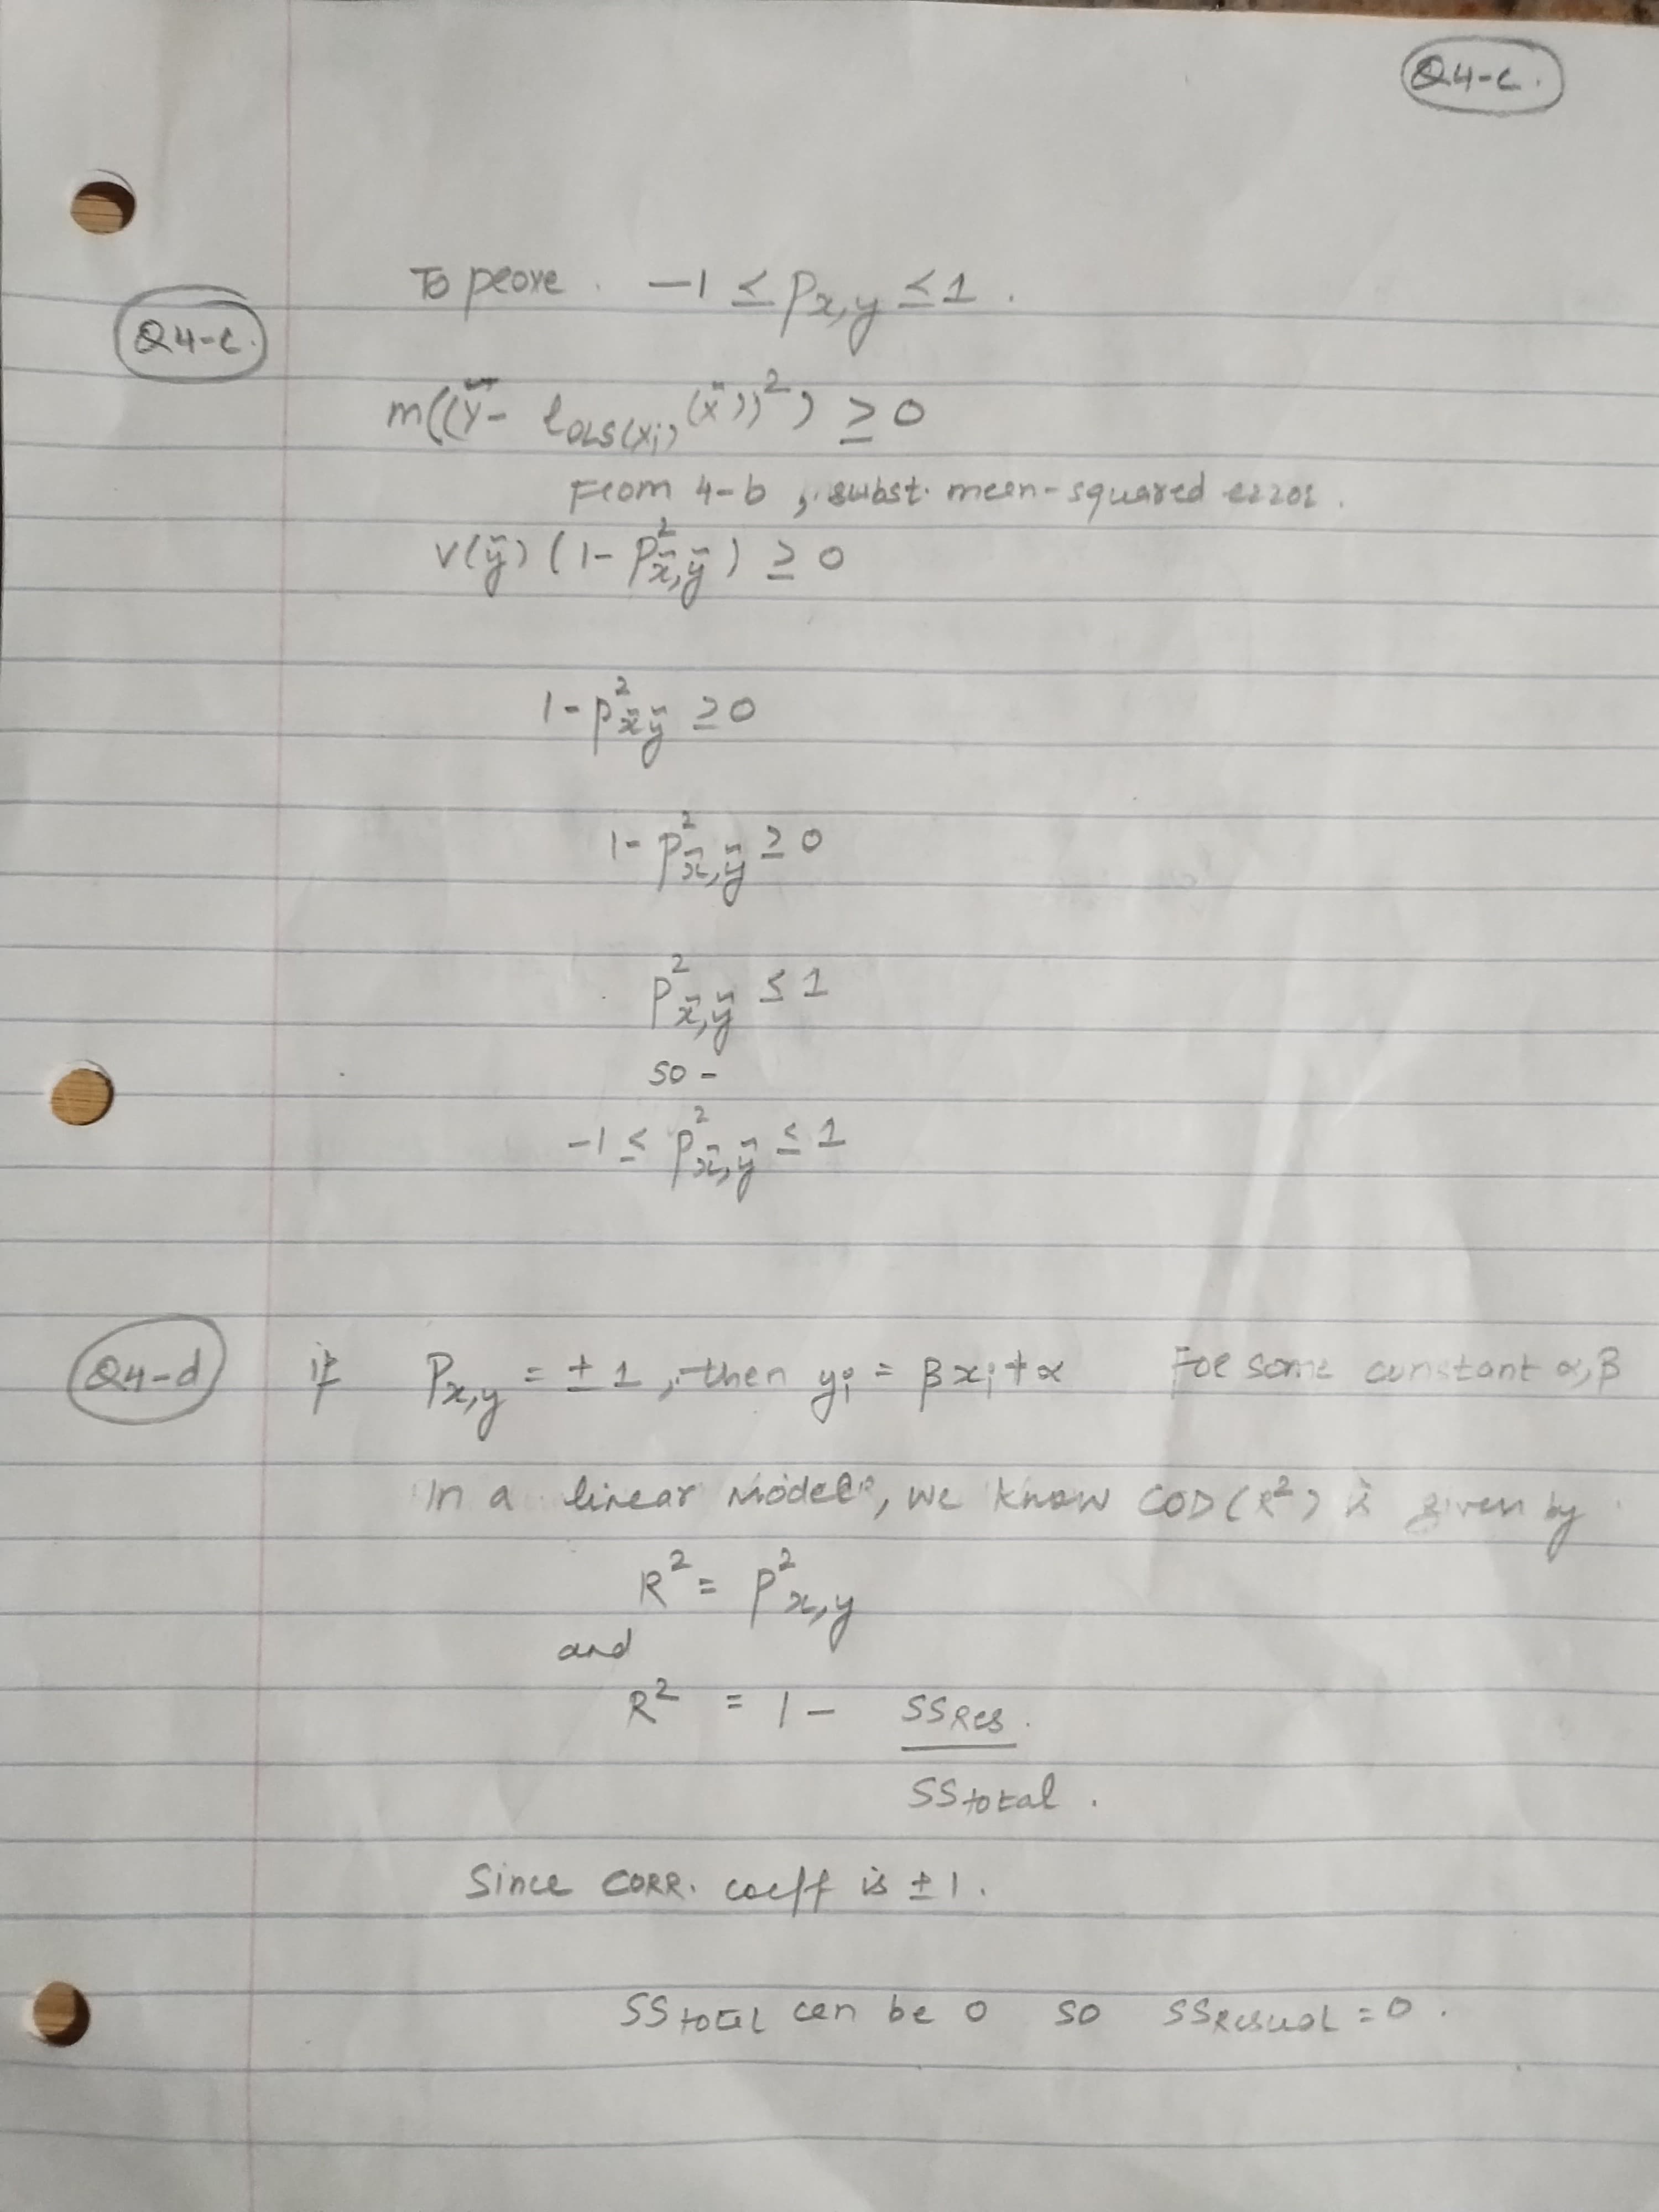 Q4-c.
To prove. -1 ≤ ρx,y ≤ 1.
Q4-c.
m((Ỹ - ℓOLS(xi) (x̃))²) ≥ 0
From 4-b, subst. mean-squared error.
v(ỹ) (1 - ρ²x̃,ỹ) ≥ 0
1 - ρ²x̃ỹ ≥ 0
1 - ρ²x̃,ỹ ≥ 0
ρ²x̃,ỹ ≤ 1
so -
-1 ≤ ρ²x̃,ỹ ≤ 1
Q4-d if ρx,y = ±1, then yi = βxi + α For some constant α, β
In a linear model, we know COD (R²) is given by
R² = ρ²x,y
and
R² = 1 - SSRes.
SStotal.
Since CORR. coeff is ±1.
SStotal can be 0 so SSResual = 0.